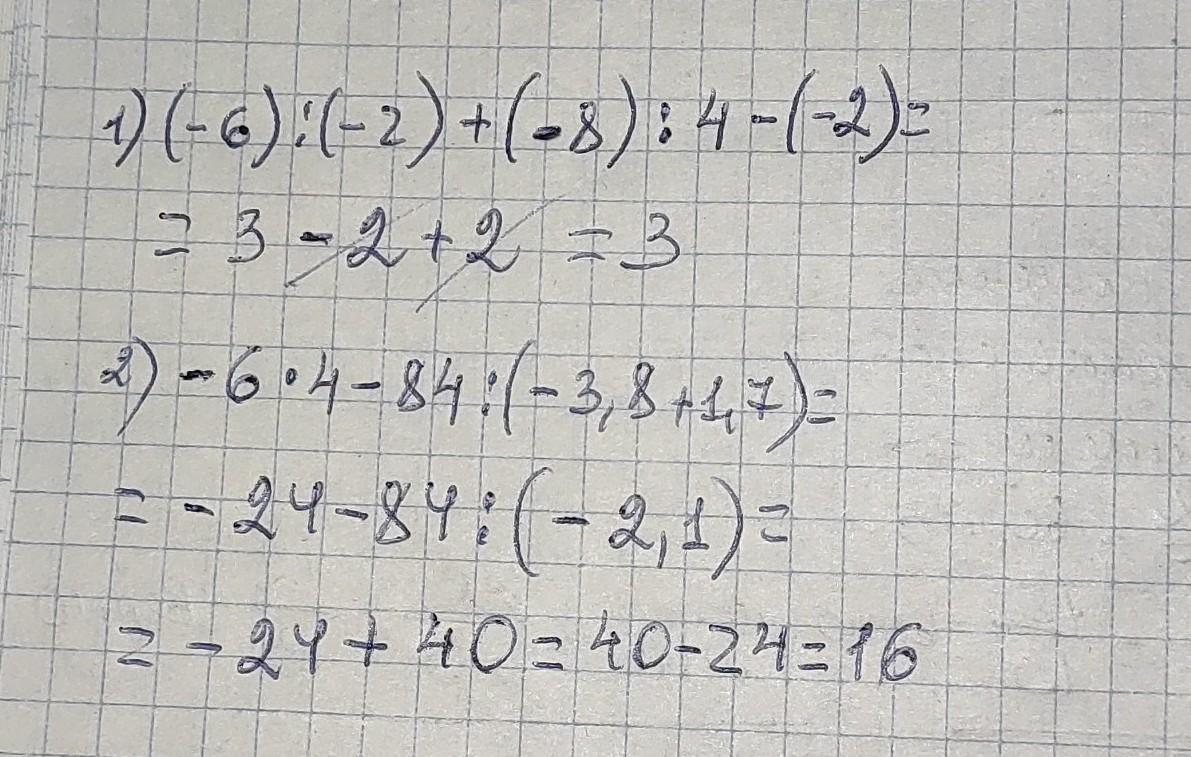 1) (-6):(-2)+(-8):4-(-2)=
= 3 - 2 + 2 = 3
2) -6·4-84:(-3,8+1,7)=
= -24-84:(-2,1)=
= -24+40=40-24=16